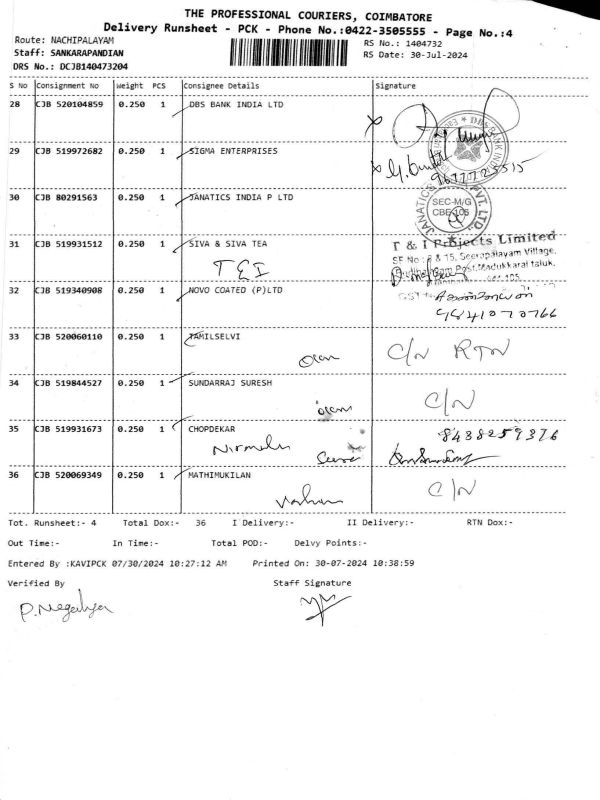 THE PROFESSIONAL COURIERS, COIMBATORE
Delivery Runsheet - PCK - Phone No.:0422-3505555 - Page No.:4
Route: NACHIPALAYAM RS No.: 1404732
Staff: SANKARAPANDIAN RS Date: 30-Jul-2024
DRS No.: DCJB140473204
S No Consignment No Weight PCS Consignee Details Signature
28 CJB 520104859 0.250 1 DBS BANK INDIA LTD
29 CJB 519972682 0.250 1 SIGMA ENTERPRISES
9677725515
30 CJB 80291563 0.250 1 JANATICS INDIA P LTD
JANATICS PVT. LTD.
SEC-M/G
CBE-105
31 CJB 519931512 0.250 1 SIVA & SIVA TEA
T & I Projects Limited
T&I
SF No : 8 & 15, Seerapalayam Village,
Post, Madukkarai taluk,
32 CJB 519340908 0.250 1 NOVO COATED (P)LTD
9841070766
33 CJB 520060110 0.250 1 TAMILSELVI
C/N RTN
34 CJB 519844527 0.250 1 SUNDARRAJ SURESH
C/N
35 CJB 519931673 0.250 1 CHOPDEKAR
8438259376
Nirmala
36 CJB 520069349 0.250 1 MATHIMUKILAN
C/N
Tot. Runsheet:- 4 Total Dox:- 36 I Delivery:- II Delivery:- RTN Dox:-
Out Time:- In Time:- Total POD:- Delvy Points:-
Entered By :KAVIPCK 07/30/2024 10:27:12 AM Printed On: 30-07-2024 10:38:59
Verified By Staff Signature